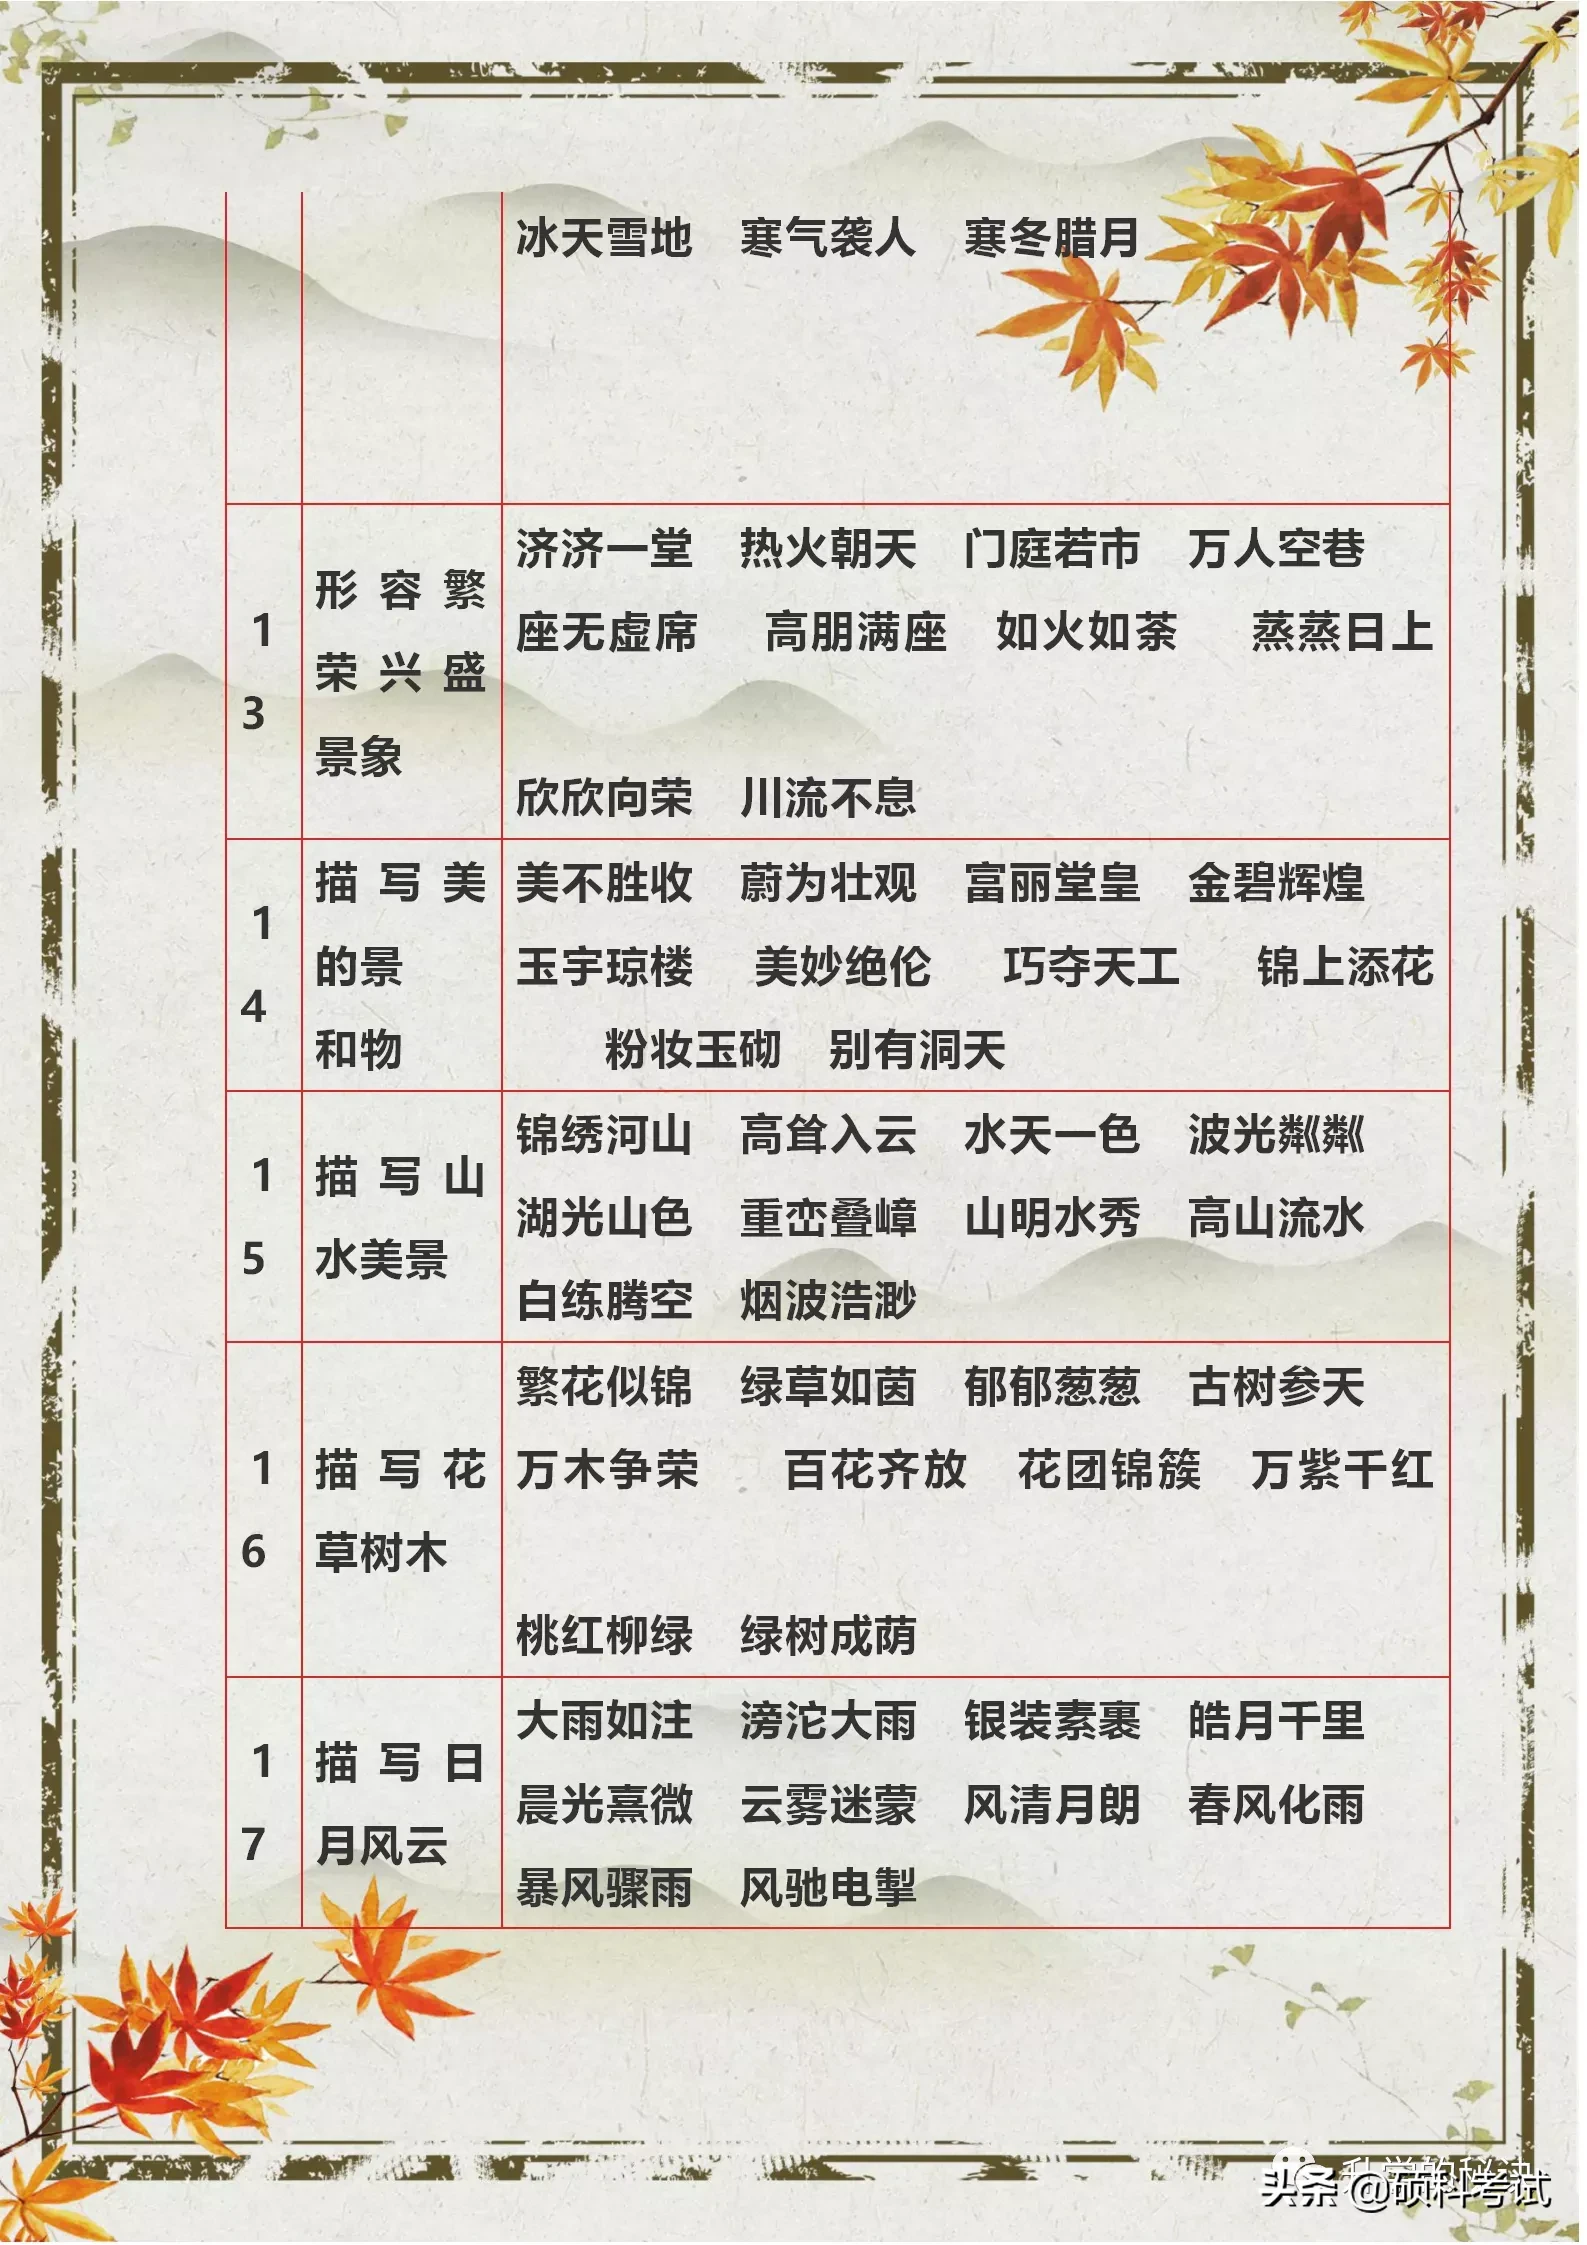 冰天雪地 寒气袭人 寒冬腊月
13
形容繁
荣兴盛
景象
济济一堂 热火朝天 门庭若市 万人空巷
座无虚席 高朋满座 如火如荼 蒸蒸日上
欣欣向荣 川流不息
14
描写美
的景
和物
美不胜收 蔚为壮观 富丽堂皇 金碧辉煌
玉宇琼楼 美妙绝伦 巧夺天工 锦上添花
粉妆玉砌 别有洞天
15
描写山
水美景
锦绣河山 高耸入云 水天一色 波光粼粼
湖光山色 重峦叠嶂 山明水秀 高山流水
白练腾空 烟波浩渺
16
描写花
草树木
繁花似锦 绿草如茵 郁郁葱葱 古树参天
万木争荣 百花齐放 花团锦簇 万紫千红
桃红柳绿 绿树成荫
17
描写日
月风云
大雨如注 滂沱大雨 银装素裹 皓月千里
晨光熹微 云雾迷蒙 风清月朗 春风化雨
暴风骤雨 风驰电掣
头条 @硕科考试